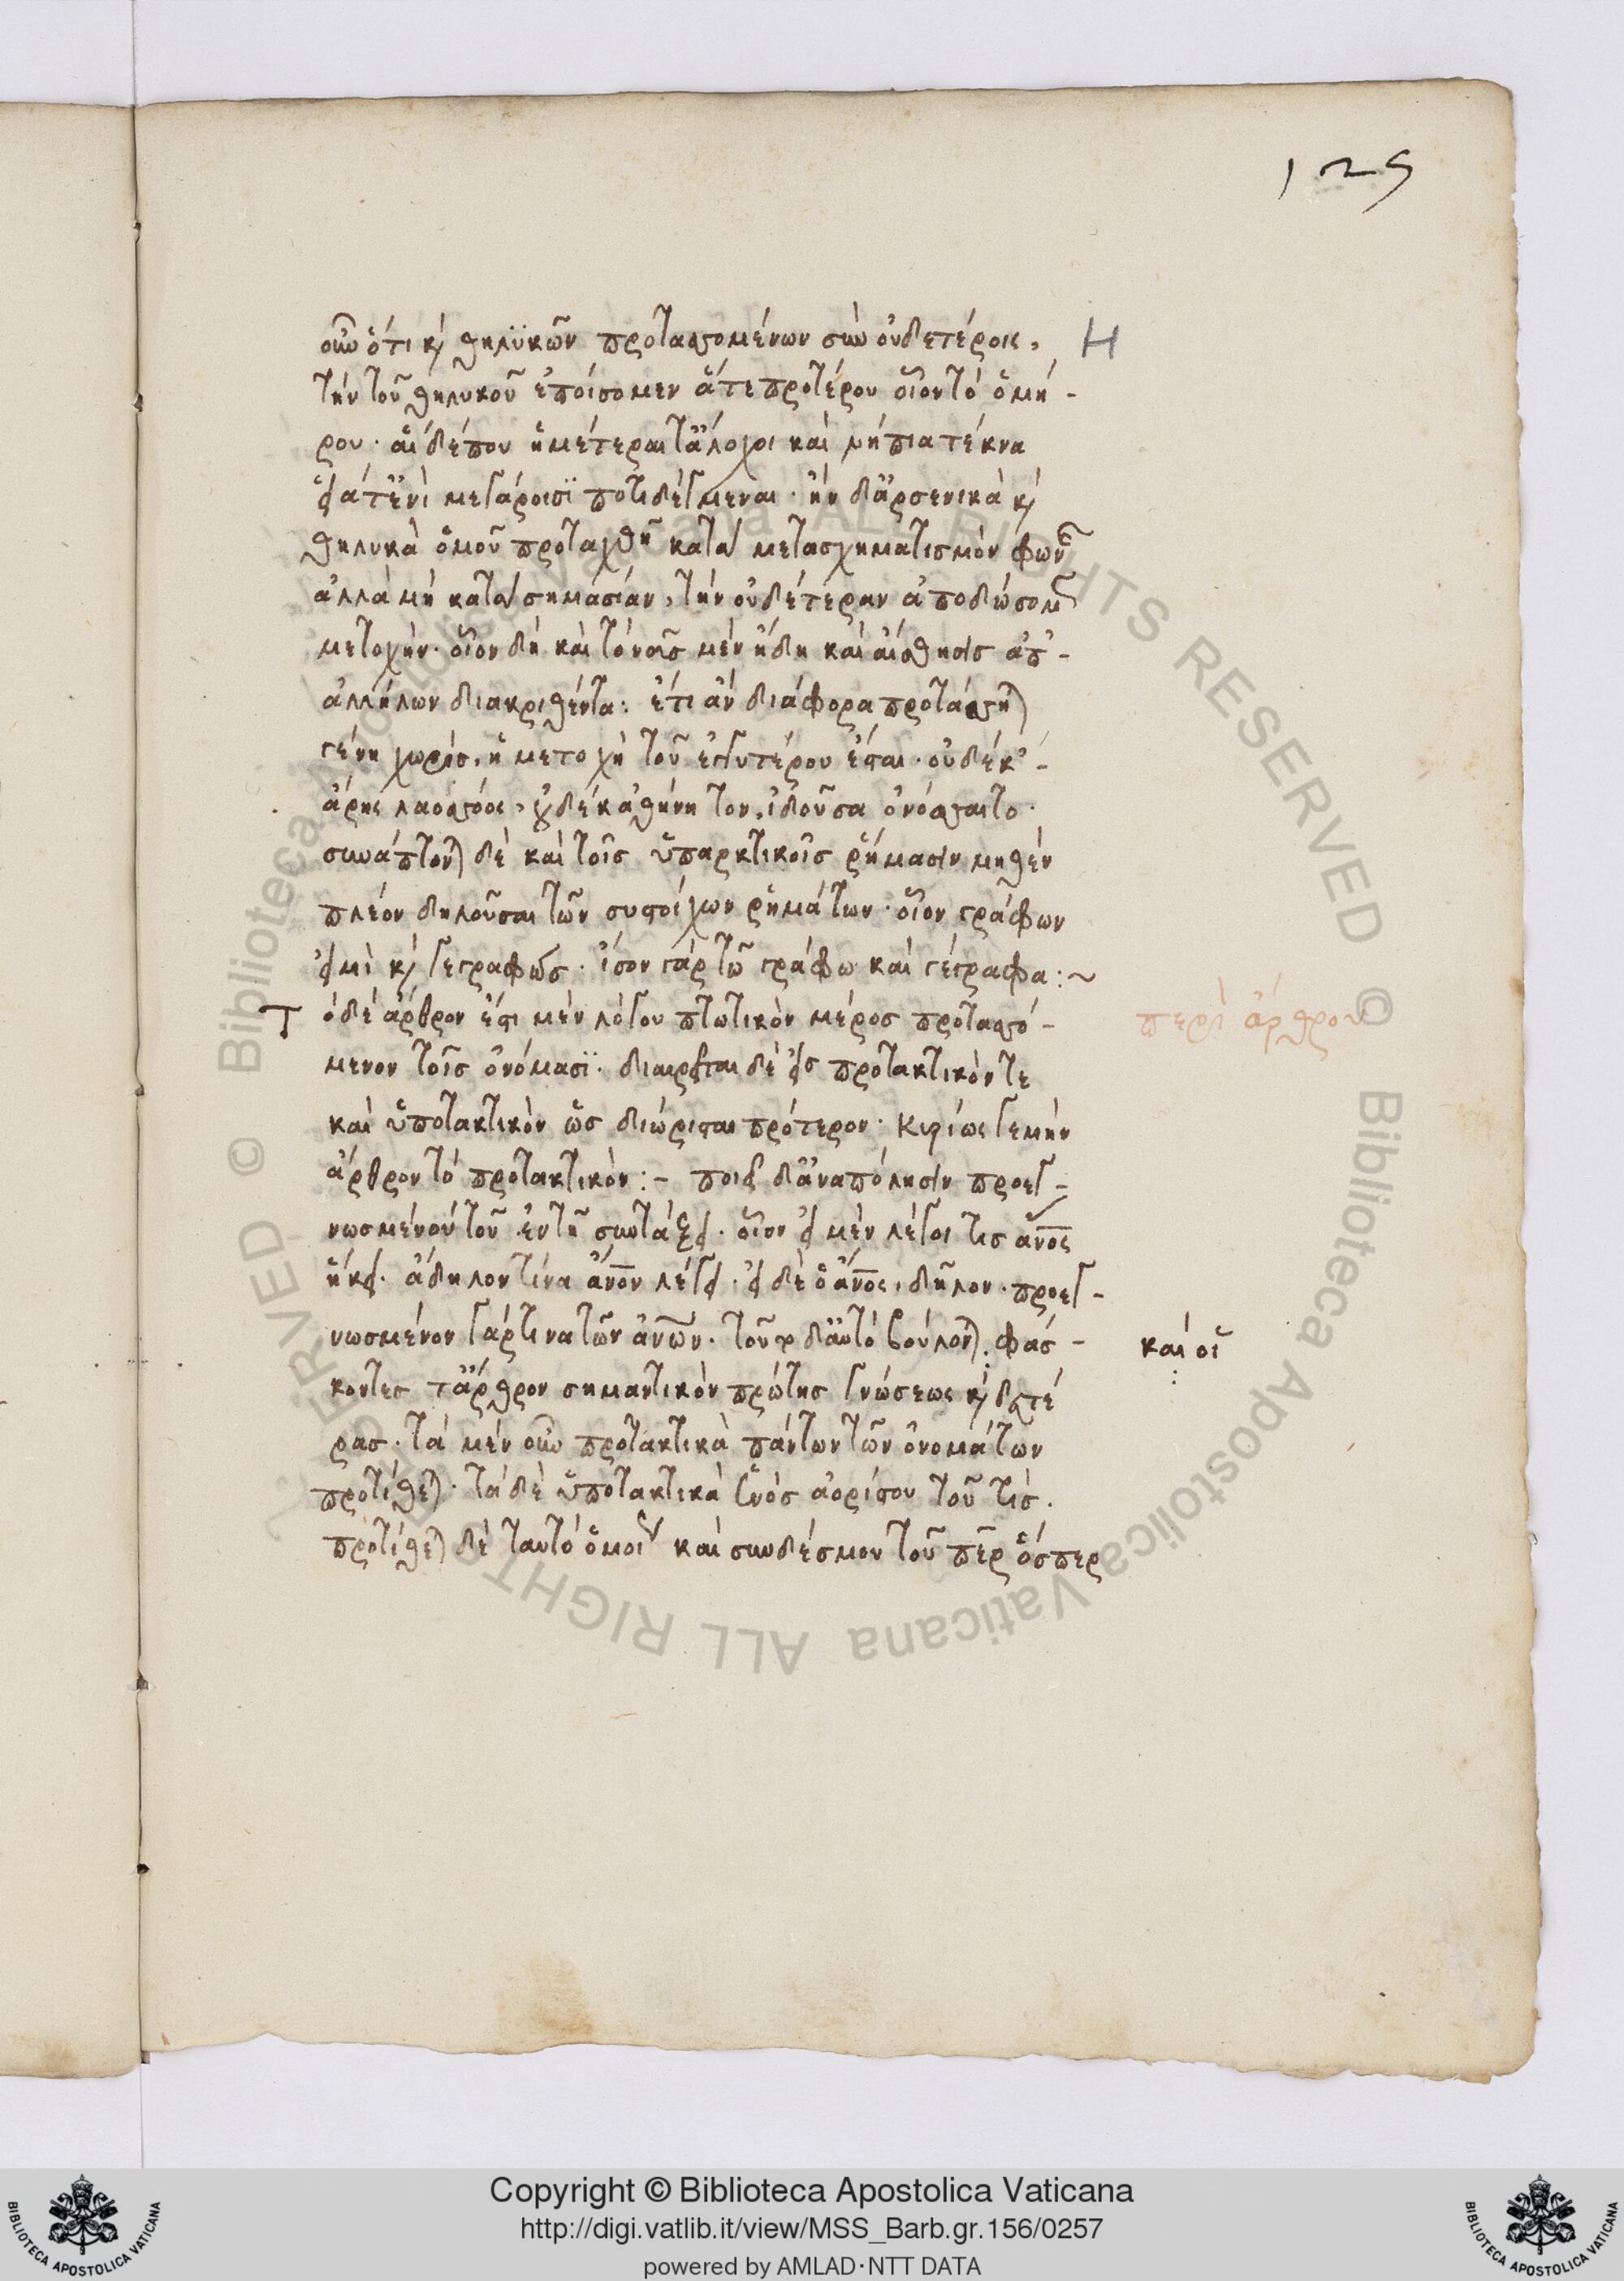 125
οὖν ὅτι κ) θηλϋκῶν προταττομένων σὺν οὐδετέροις, Η
τὴν τοῦ θηλυκοῦ ἐποίσομεν ἅτε προτέρου οἷον τὸ ὁμή-
ρου· αἱ δέ που ἡμέτεραι τ' ἄλοχοι καὶ νήπια τέκνα
εἵατ' ἐνὶ μεγάροισϊ ποτιδέγμεναι· ἢν δ' ἀρσενικὰ κ)
θηλυκὰ ὁμοῦ προταχθῆ κατὰ μετασχηματισμὸν φων
ἀλλὰ μὴ κατὰ σημασίαν, τὴν οὐδέτεραν ἀποδώσομ
μετοχήν· οἷον δὴ καὶ τὸ νοῦς μὲν ἤδη καὶ αἴσθησις ἀπ'-
ἀλλήλων διακριθέντα: ἔτι ἂν διάφορα προτάττη)
γένη χωρὶς, ἡ μετοχὴ τοῦ ἐγγυτέρου ἔσται· οὐδέ κ'-
ἄρης λαοσσόος, οὐδέ κ' ἀθήνη τόν, ἰδοῦσα ὀνόσσαιτο·
συνάπτον) δὲ καὶ τοῖς ὑπαρκτικοῖς ῥήμασιν μηθὲν
πλέον δηλοῦσαι τῶν συστοίχων ῥημάτων· οἷον γράφων
εἰμὶ κ) γεγραφώς· ἴσον γὰρ τῶ γράφω καὶ γέγραφα:~
Τ ὁδὲ ἄρθρον ἔστι μὲν λόγου πτωτικὸν μέρος προταττό-
περὶ ἄρθρου
μενον τοῖς ὀνόμασϊ· διαιρεῖται δὲ εἰς προτακτικόν τε
καὶ ὑποτακτικὸν ὡς διώρισται πρότερον· κυρίως γε μὴν
ἄρθρον τὸ προτακτικὸν:- ποιεῖ δ' ἀναπόλησιν προεγ-
νωσμένου τοῦ ἐν τῆ συντάξει· οἷον εἰ μὲν λέγοι τις ἄνος
ἥκει· ἄδηλον τίνα ἄνον λέγει· εἰ δὲ ὁ ἄνος, δῆλον· προεγ-
νωσμένον γάρ τινα τῶν ἀνων· τοῦτο δ' αὐτὸ βούλον). φάσ-
καὶ οἱ
κοντες τ' ἄρθρον σημαντικὸν πρώτης γνώσεως κ) δευτέ
ρας· τὰ μὲν οὖν προτακτικὰ πάντων τῶν ὀνομάτων
προτίθε)· τὰ δὲ ὑποτακτικὰ ἑνὸς ἀορίστου τοῦ τίς.
προτίθε) δὲ ταυτὸ ὁμοῦ καὶ συνδέσμου τοῦ πὲρ ὅσπερ
Copyright © Biblioteca Apostolica Vaticana
http://digi.vatlib.it/view/MSS_Barb.gr.156/0257
powered by AMLAD·NTT DATA
BIBLIOTECA APOSTOLICA VATICANA
BIBLIOTECA APOSTOLICA VATICANA
© Biblioteca Apostolica Vaticana ALL RIGHTS RESERVED © Biblioteca Apostolica Vaticana ALL RIGHTS RESERVED